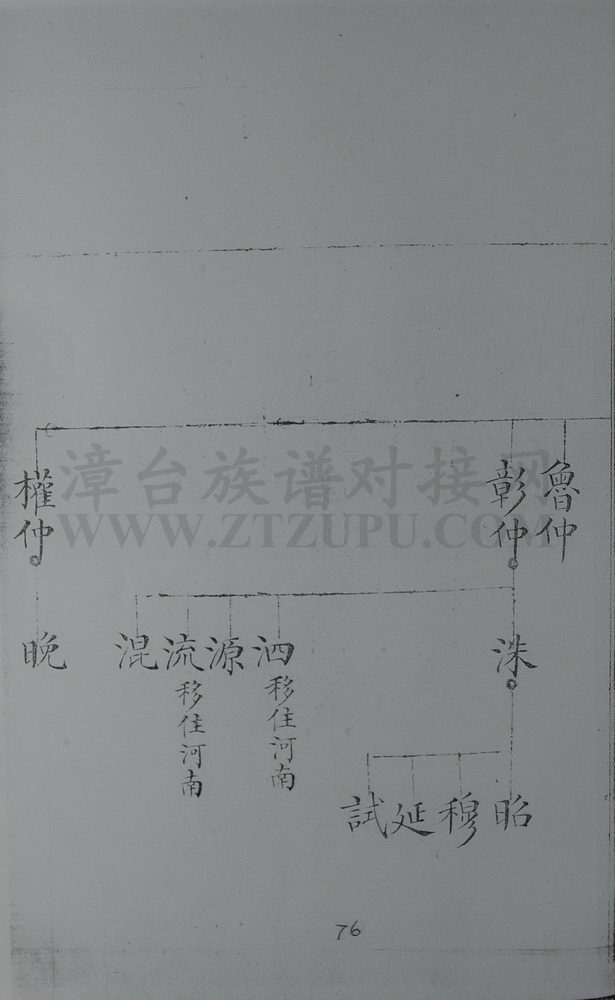 魯仲
彰仲
權仲
洙
泗 移住河南
源
流 移住河南
混
晚
昭
穆
延
試
漳台族谱对接网
WWW.ZTZUPU.COM
76